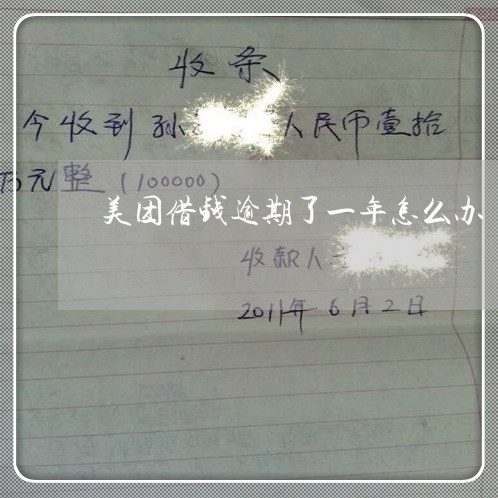 收条
今收到孙 人民币壹拾
万元整(100000)
美团借钱逾期了一年怎么办
收款人
2011年6月2日